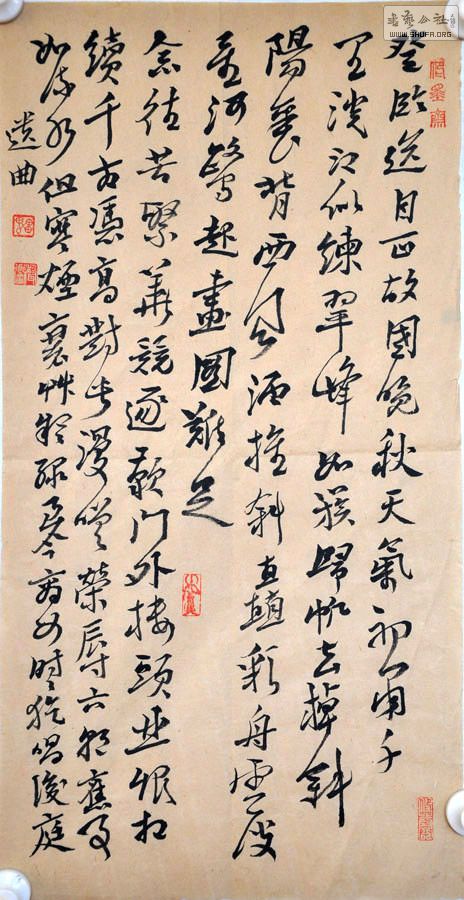 登臨送目正故國晚秋天氣初肅千
里澄江似練翠峰如簇歸帆去棹斜
陽裏背西風酒旗斜矗彩舟雲淡
星河鷺起畫圖難足
念往昔繁華競逐歎門外樓頭悲恨相
續千古憑高對此漫嗟榮辱六朝舊事
如流水但寒煙衰艸凝綠至今商女時時猶唱後庭
遺曲
WWW.SHUFA.ORG